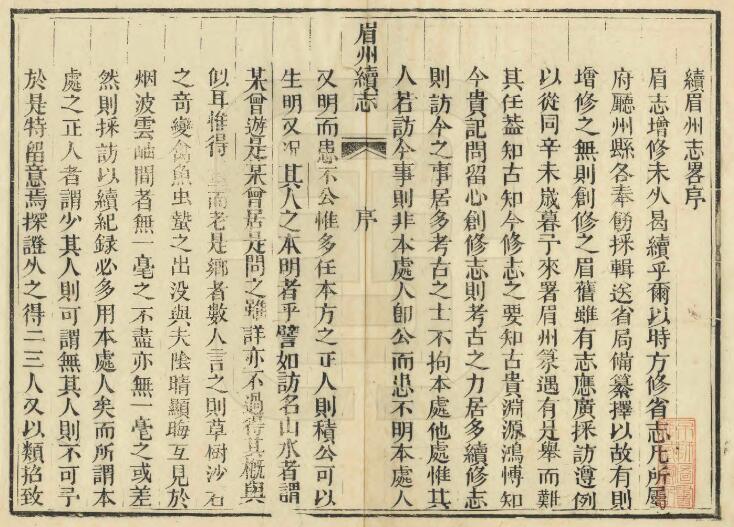 續眉州志畧序
眉志增修未久曷續乎爾以時方修省志凡所屬
府廳州縣各奉飭採輯送省局備纂擇以故有則
增修之無則創修之眉舊雖有志應廣採訪遵例
以從同辛未歲暮予來署眉州篆遇有是舉而難
其任蓋知古知今修志之要知古貴淵源鴻博知
今貴記問留心創修志則考古之力居多續修志
則訪今之事居多考古之士不拘本處他處惟其
人若訪今事則非本處人即公而患不明本處人
眉州續志
序
又明而患不公惟多任本方之正人則積公可以
生明又况其人之本明者乎譬如訪名山水者謂
某曾遊是某曾居是問之雖詳亦不過得其概與
似耳惟得 而老是鄉者數人言之則草樹沙石
之奇變禽魚虫蟄之出没與夫陰晴顯晦互見於
烟波雲岫間者無一毫之不盡亦無一毫之或差
然則採訪以續紀録必多用本處人矣而所謂本
處之正人者謂少其人則可謂無其人則不可予
於是特留意焉探證久之得二三人又以類招致